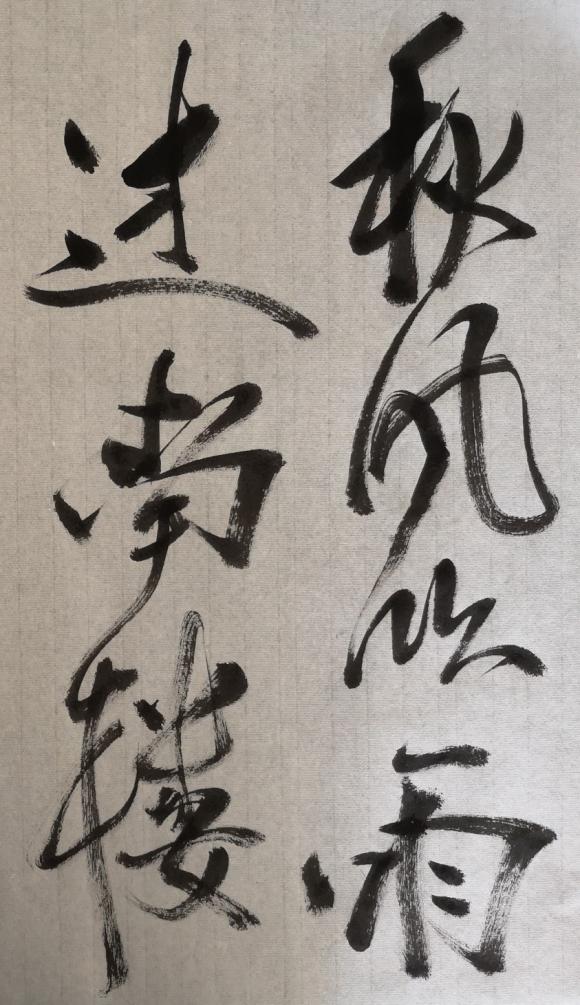 秋风吹雨
过南楼